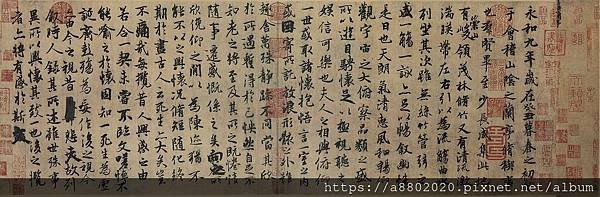 永和九年歲在癸丑暮春之初會
于會稽山陰之蘭亭脩稧事
也群賢畢至少長咸集此地
有崇山峻領茂林脩竹又有清流激
湍暎帶左右引以為流觴曲水
列坐其次雖無絲竹管弦之
盛一觴一詠亦足以暢敘幽情
是日也天朗氣清惠風和暢仰
觀宇宙之大俯察品類之盛
所以遊目騁懷足以極視聽之
娛信可樂也夫人之相與俯仰
一世或取諸懷抱悟言一室之內
或因寄所託放浪形骸之外雖
趣舍萬殊靜躁不同當其欣
於所遇蹔得於己怏然自足不
知老之將至及其所之既惓情
隨事遷感慨係之矣向之所
欣俛仰之閒以為陳迹猶不
能不以之興懷況脩短隨化終
期於盡古人云死生亦大矣豈
不痛哉每攬昔人興感之由
若合一契未嘗不臨文嗟悼不
能喻之於懷固知一死生為虛
誕齊彭殤為妄作後之視今
亦由今之視昔悲夫故列
敘時人錄其所述雖世殊事
異所以興懷其致一也後之攬
者亦將有感於斯文
https://a8802020.pixnet.net/album